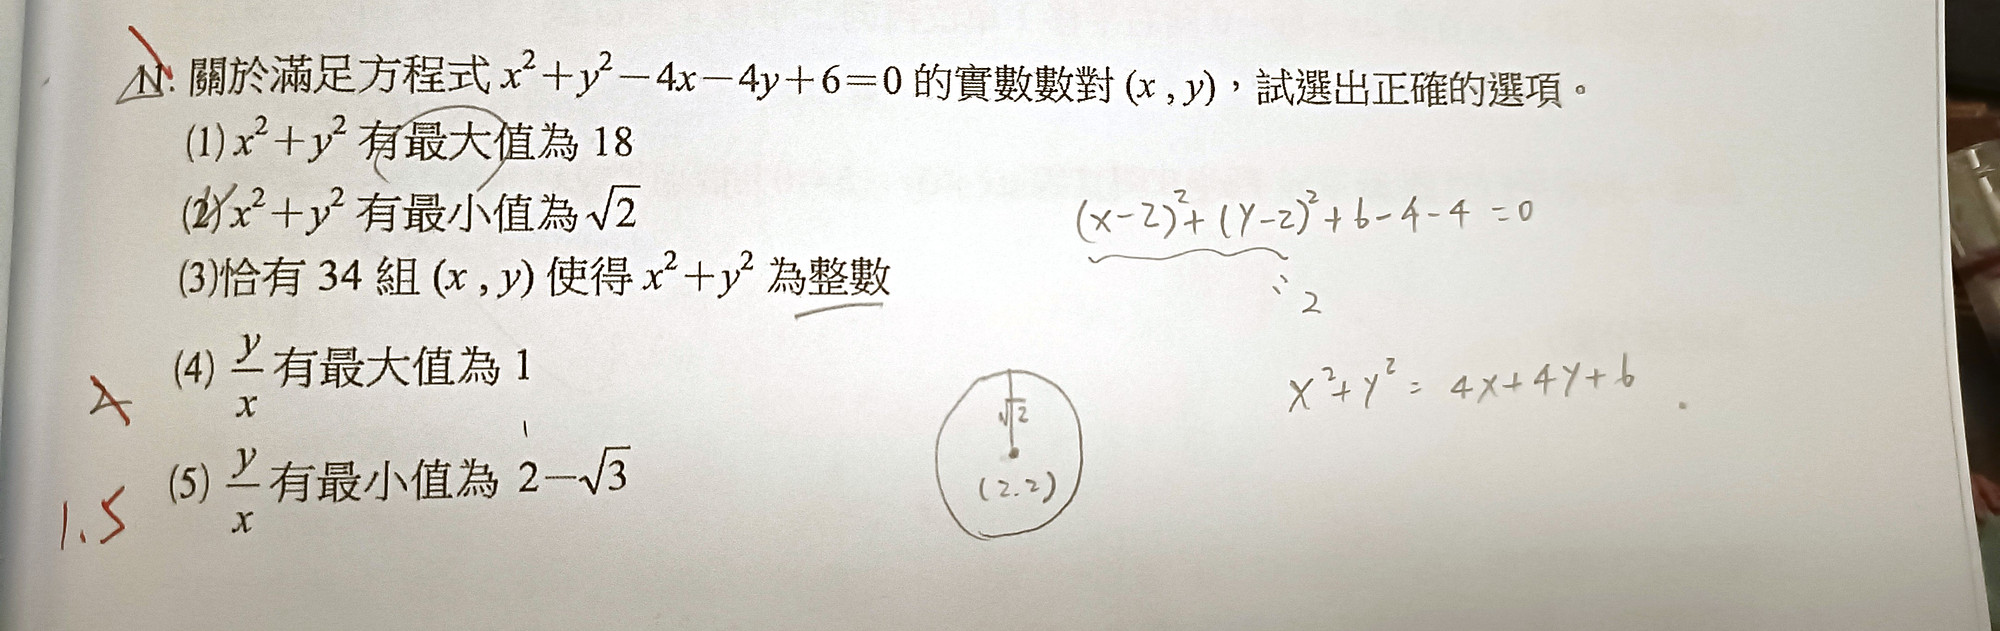 11. 關於滿足方程式 x²+y²−4x−4y+6=0 的實數數對 (x , y)，試選出正確的選項。
(1) x²+y² 有最大值為 18
(2) x²+y² 有最小值為 √2
(3)恰有 34 組 (x , y) 使得 x²+y² 為整數
(4) y/x 有最大值為 1
(5) y/x 有最小值為 2−√3
1.5
√2
(2.2)
(x-2)²+(y-2)²+6-4-4=0
2
x²+y²=4x+4y+6